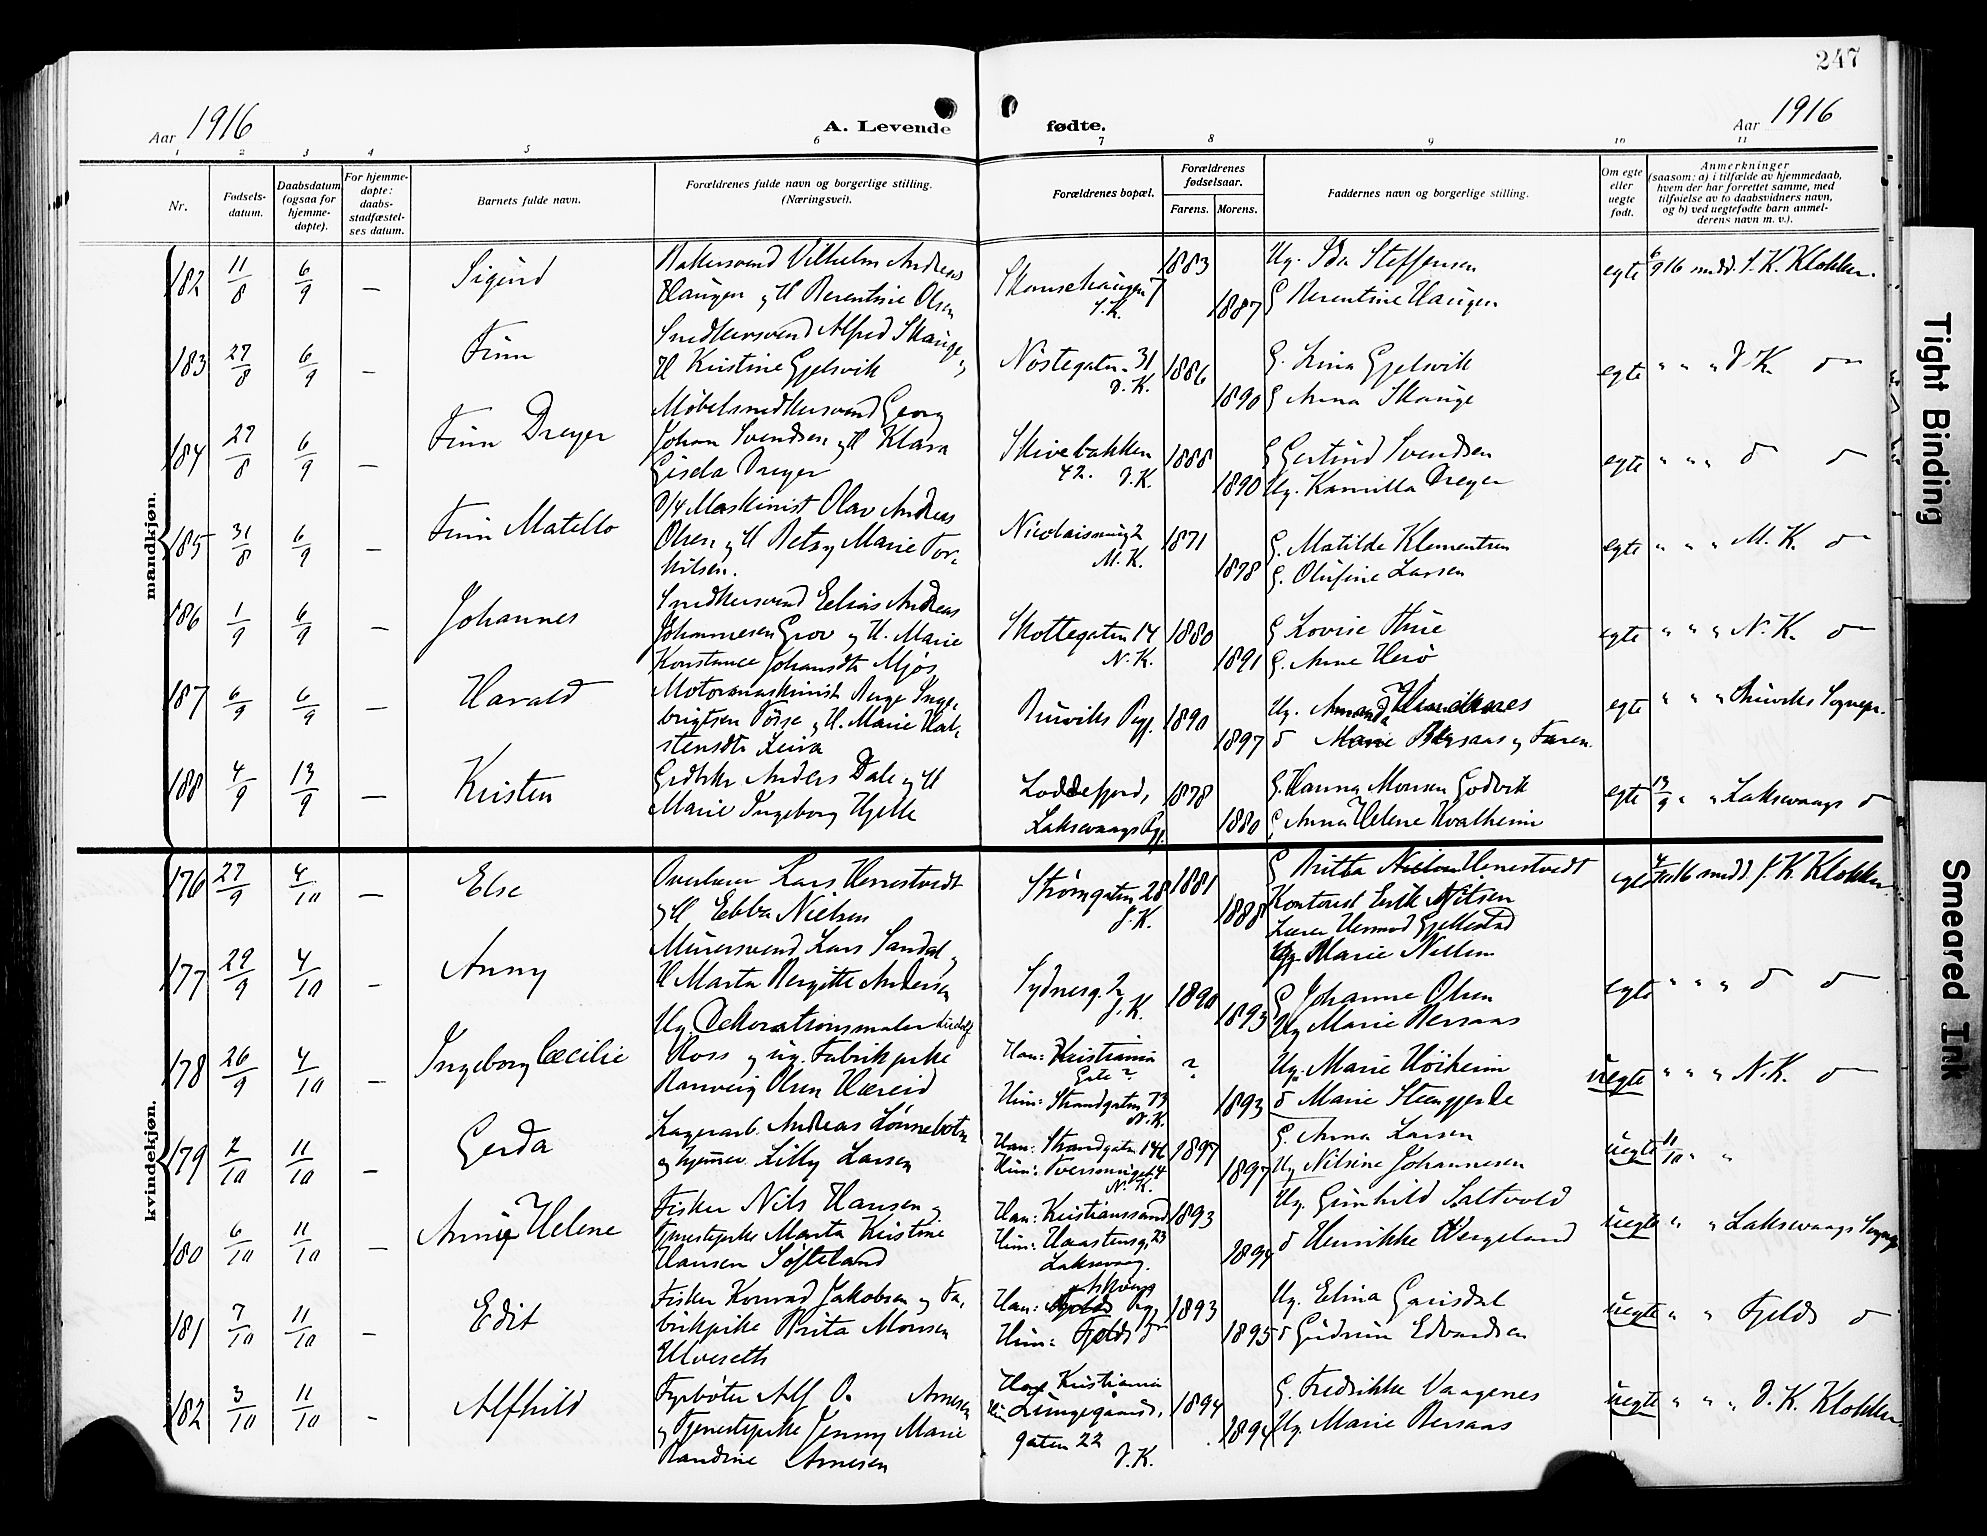 247
Aar 1916
A. Levende
fødte.
Aar 1916
1 2 3 4 5 6 7 8 9 10 11
Nr.
Fødsels-
datum.
Daabsdatum
(ogsaa for
hjemme-
døpte).
For hjemme-
døpte:
daabs-
stadfæstel-
ses datum.
Barnets fulde navn.
Forældrenes fulde navn og borgerlige stilling.
(Næringsvei).
Forældrenes bopæl.
Forældrenes
fødselsaar.
Farens. Morens.
Faddernes navn og borgerlige stilling.
Om egte
eller
uegte
født.
Anmerkninger
(saasom: a) i tilfælde av hjemmedaab,
hvem der har forrettet samme, med
tilføielse av to daabsvidners navn,
og b) ved uegtefødte barn anmel-
derens navn m. v.).
mandkjøn.
182 11/8 6/9 — Sigurd
Bakersvend Vilhelm Andreas
Haugen og H Berentine Olsen
Skansehaugen 7
J.K.
1883 1887
Ug. Ida Steffensen
G Berentine Haugen
egte 6/9 16 medd. J. K. Klokker.
183 27/8 6/9 — Finn
Snedkersvend Alfred Skauge og
H Kristine Gjelsvik
Nöstegaten 31
D.K.
1886 1890
G. Lina Gjelsvik
G Anna Skauge
egte " " " D.K. do
184 27/8 6/9 — Finn Dreyer
Møbelsnedkersvend Georg
Johan Svendsen og H Klara
Gisela Dreyer
Skivebakken
42. D.K.
1888 1890
G Gertrud Svendsen
Ug. Kamilla Dreyer
egte " " " do do
185 31/8 6/9 — Finn Matello
D/4 Maskinist Olav Andreas
Olsen og H Betsy Marie Tor-
kilsen.
Nicolaismug 2
M.K.
1871 1878
G. Matilde Klementsen
G. Olufine Larsen
egte " " " M.K. do
186 1/9 6/9 — Johannes
Snedkersvend Elias Andreas
Johannesen Grov og H. Marie
Konstance Johansdtr Mjøs
Skottegaten 14
N.K.
1880 1891
G Lovise Thue
G. Anne Herö
egte " " " N.K. do
187 6/9 6/9 — Harald
Motormaskinist Berge Inge-
brigtsen Törse og H. Marie Hal-
stensdtr Leira
Bruviks Pgj.
1890 1897
Ug. Amanda Hendksnes
do Marie Bersaas og Faren.
egte " " " Bruviks Sognepr.
188 4/9 13/9 — Kristen
Grdbkr Anders Dale og H
Marie Ingeborg Hjelle
Loddefjord,
Laksevaags Pgj.
1878 1880
G. Hanna Monsen Godvik
G. Anna Helene Kvalheim
egte 13/9 " " Laksevaags do
kvindekjøn.
176 27/9 4/10 — Else
Overlærer Lars Hennestvedt
og H Ebba Nielsen
Strömgaten 28
J.K.
1881 1888
G Britta Hennestvedt
Kontorist Erik Nilsen
Lærer Hermod Gjellestad
Ug. Marie Nielsen
egte 4/10 16 medd. J. K Klokker.
177 29/9 4/10 — Anny
Murersvend Lars Sandal og
H Marta Bergitte Andersen
Sydnesg. 2
J.K.
1890 1893
G Johanne Olsen
Ug Marie Bersaas
egte " " " do do
178 26/9 4/10 — Ingeborg Cæcilie
Ug. Dekorationsmaler Ludolf
Ross og ug. Fabrikpike
Ranveig Olsen Hæreid
Han: Kristiania
Gate ?
Hun: Strandgaten 73
N.K.
? 1893
Ug. Marie Höiheim
do Marie Steengjerde
uegte " " " N.K. do
179 2/10 11/10 — Gerda
Lagerarb. Andreas Lönnebotn
og hjemmev. Lilly Larsen
Han: Strandgaten 146
Hun: Tversmuget 4
N.K.
1897 1897
G. Anna Larsen
Ug Nilsine Johannesen
uegte 11/10 " "
180 6/10 11/10 — Anny Helene
Fisker Nils Hansen og
Tjenestepike Marta Kristine
Hansen Söfteland
Han: Kristianssand
Hun: Haastensg. 23
Laksevaag.
1893 1894
Ug. Gunhild Saltvold
do Henrikke Wergeland
uegte " " Laksevaags Sognepr
181 7/10 11/10 — Edit
Fisker Konrad Jakobsen og Fa-
brikpike Brita Monsen
Ulveseth
Han: Askvoug Pgj.
Hun: Fjelds Do
1893 1895
Ug. Elina Garisdal
do Gudrun Edvardsen
uegte " " Fjelds do
182 3/10 11/10 — Alfhild
Fyrböter Alf O. Arnesen
og Tjenestepike Jenny Marie
Randine Arnesen
Han Kristiania
Hun Lungegaards-
gaten 22
D.K.
1894 1894
G. Fredrikke Vaagenes
Ug. Marie Bersaas
uegte " " " D. K. Klokker.
Tight Binding
Smeared Ink